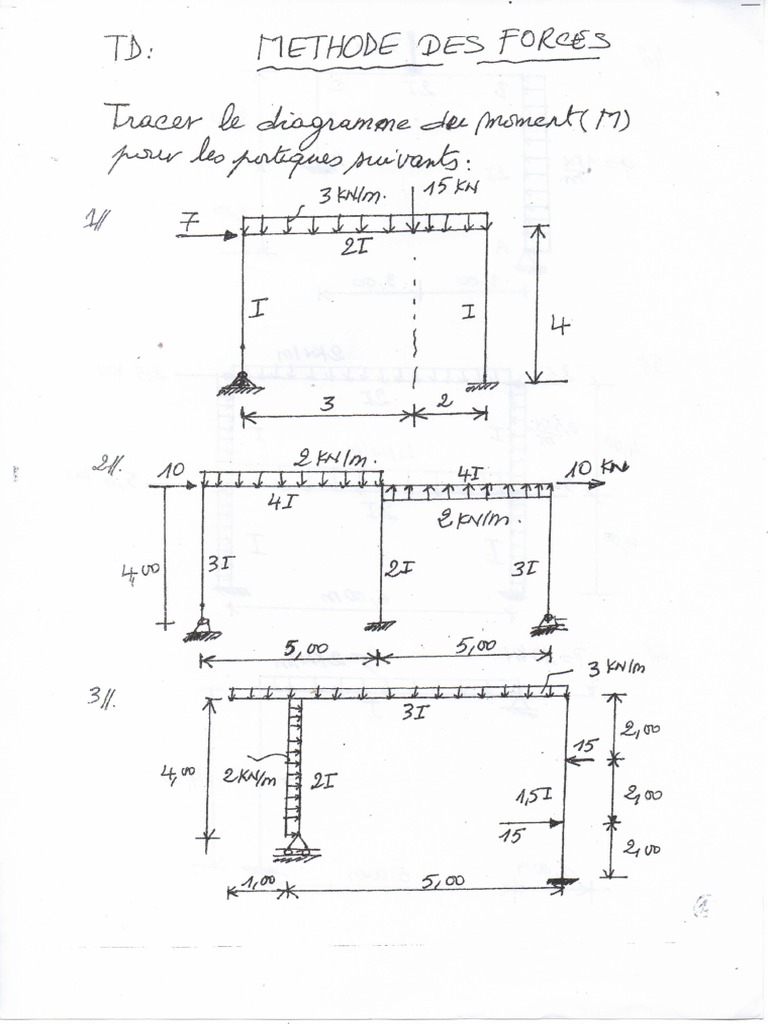 TD: METHODE DES FORCES
Tracer le diagramme du moment (M)
pour les portiques suivants:
1//
3 KN/m.
15 KN
7
2I
I
I
4
3
2
2//.
10
2 KN/m.
4I
10 KN
4I
2 KN/m.
4,00
3I
2I
3I
5,00
5,00
3//.
3 KN/m
3I
2,00
15
4,00
2 KN/m
2I
1,5I
2,00
15
2,00
1,00
5,00